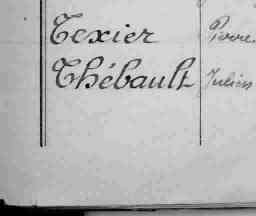 Texier Pierre
Thébault Julien